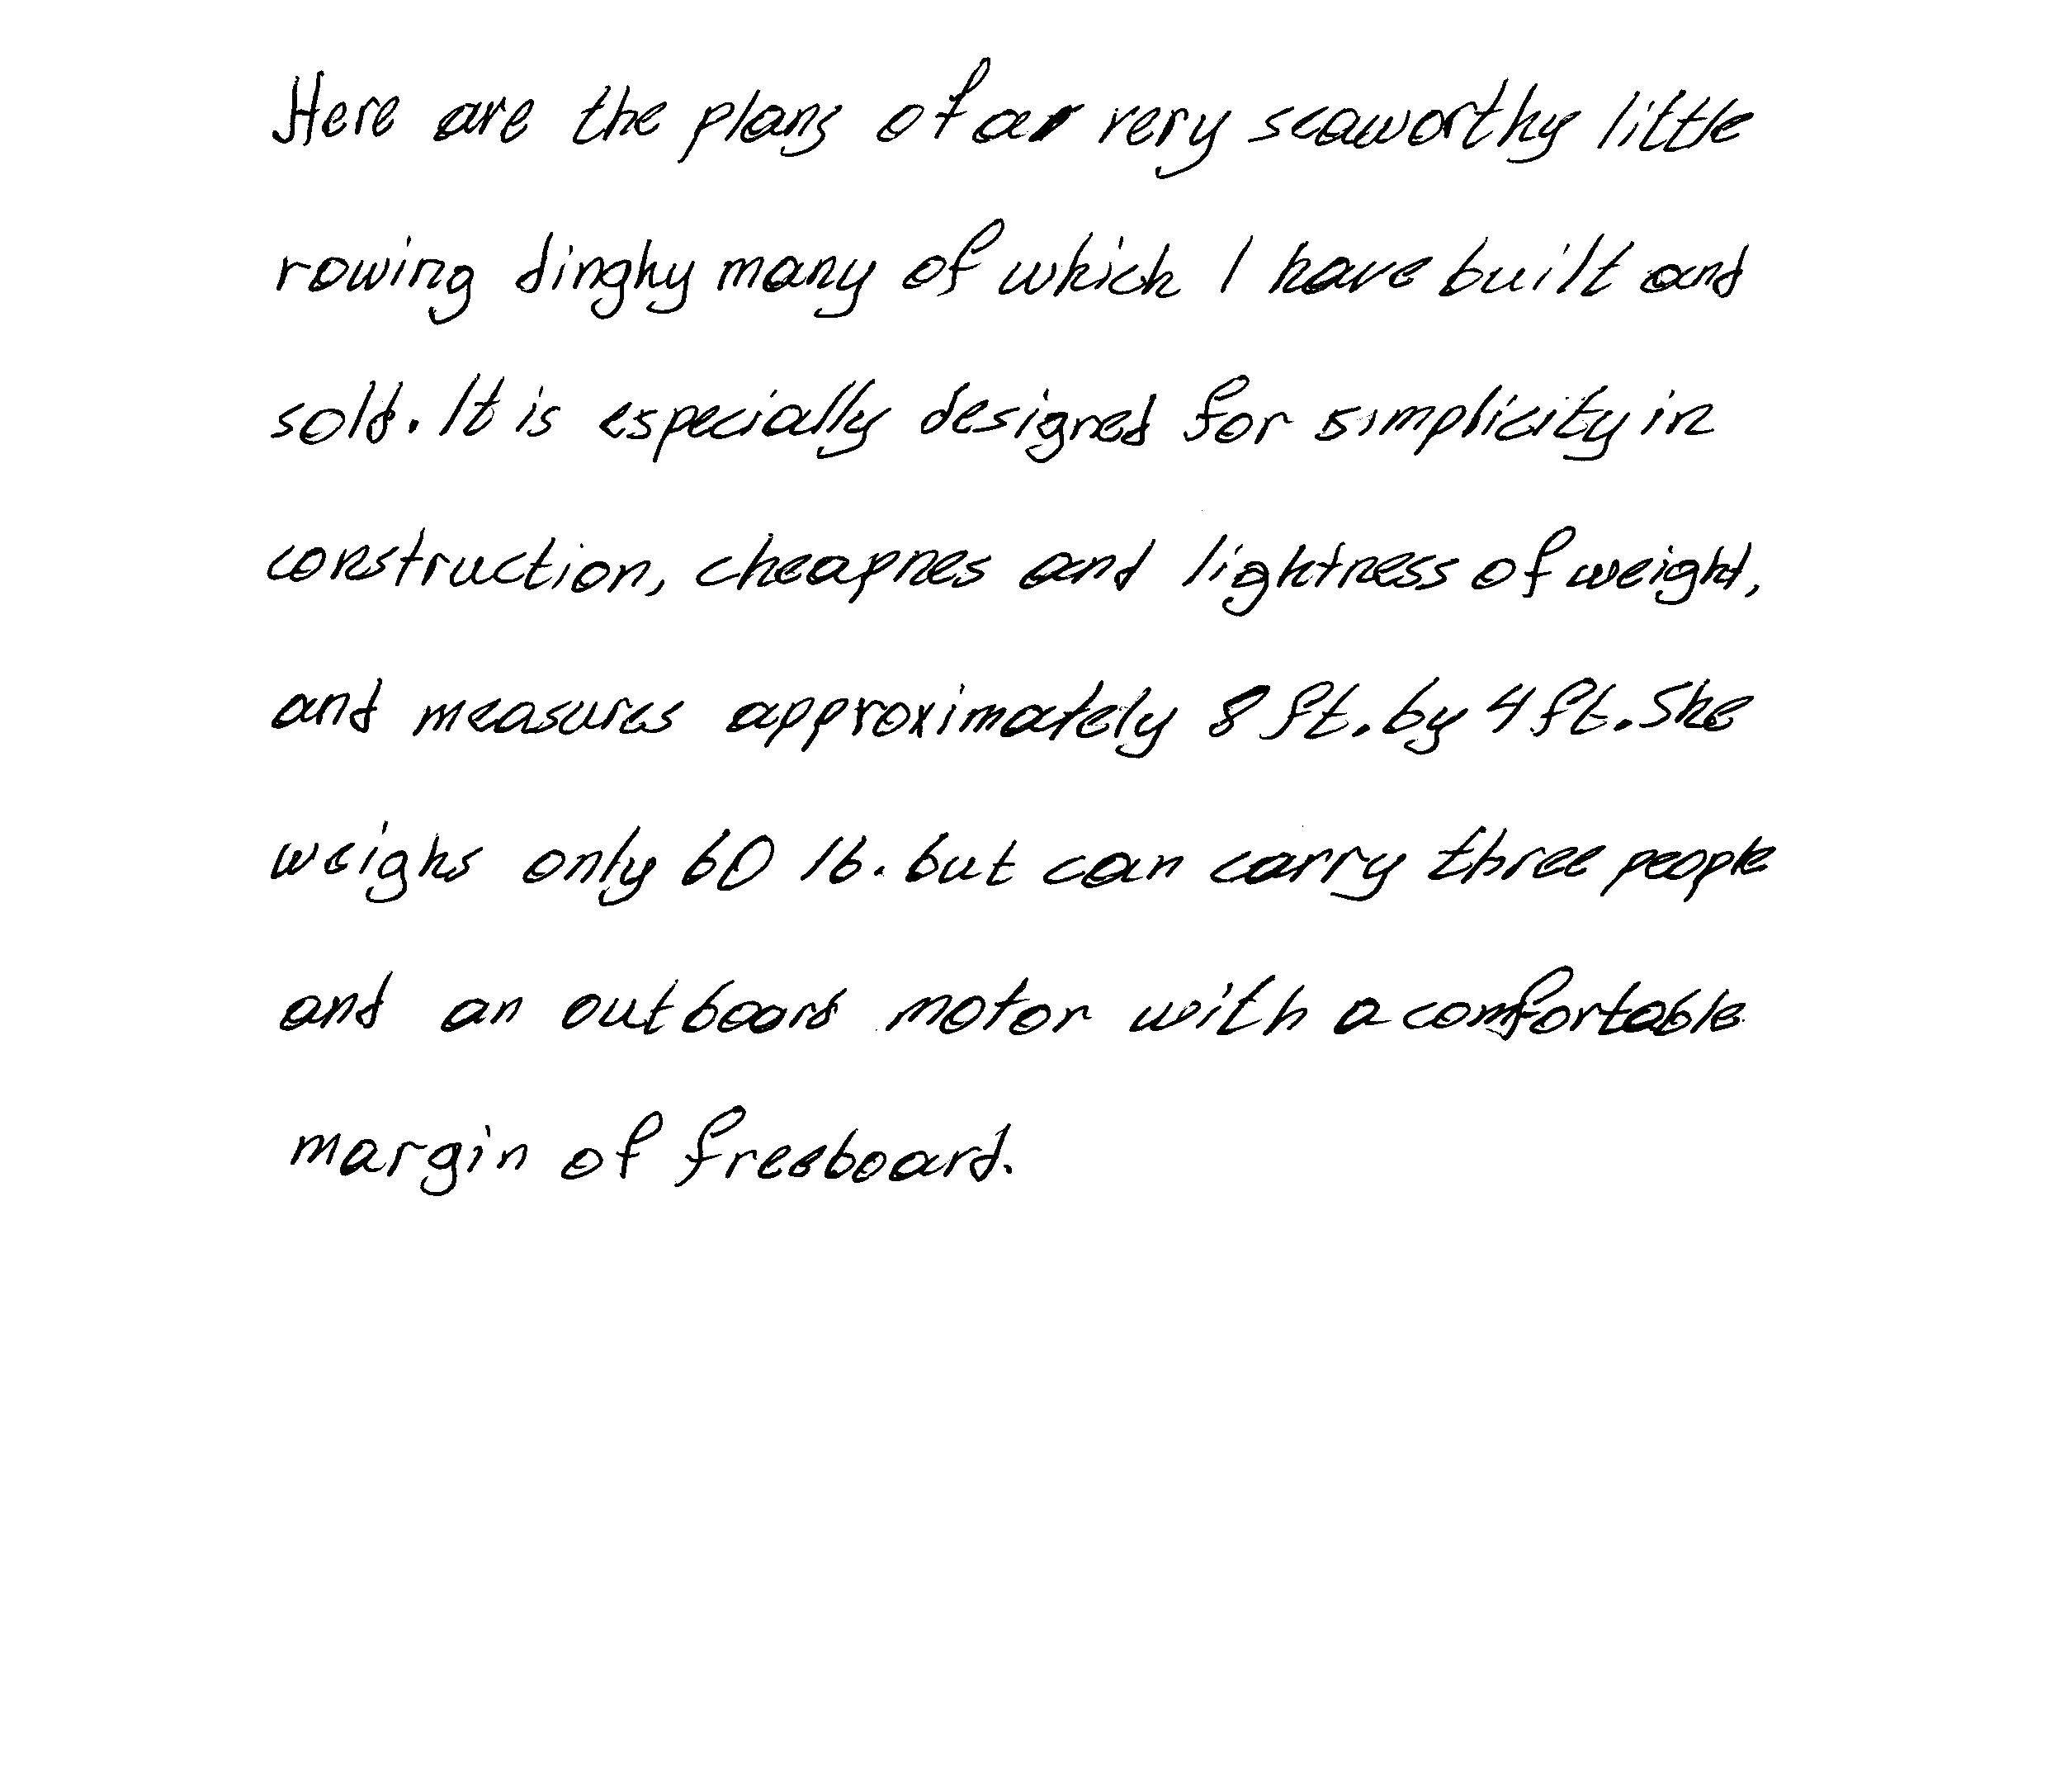 Here are the plans of a very seaworthy little
rowing dinghy many of which I have built and
sold. It is especially designed for simplicity in
construction, cheapnes and lightness of weight,
and measures approximately 8 ft. by 4 ft. She
weighs only 60 lb. but can carry three people
and an outboard motor with a comfortable
margin of freeboard.